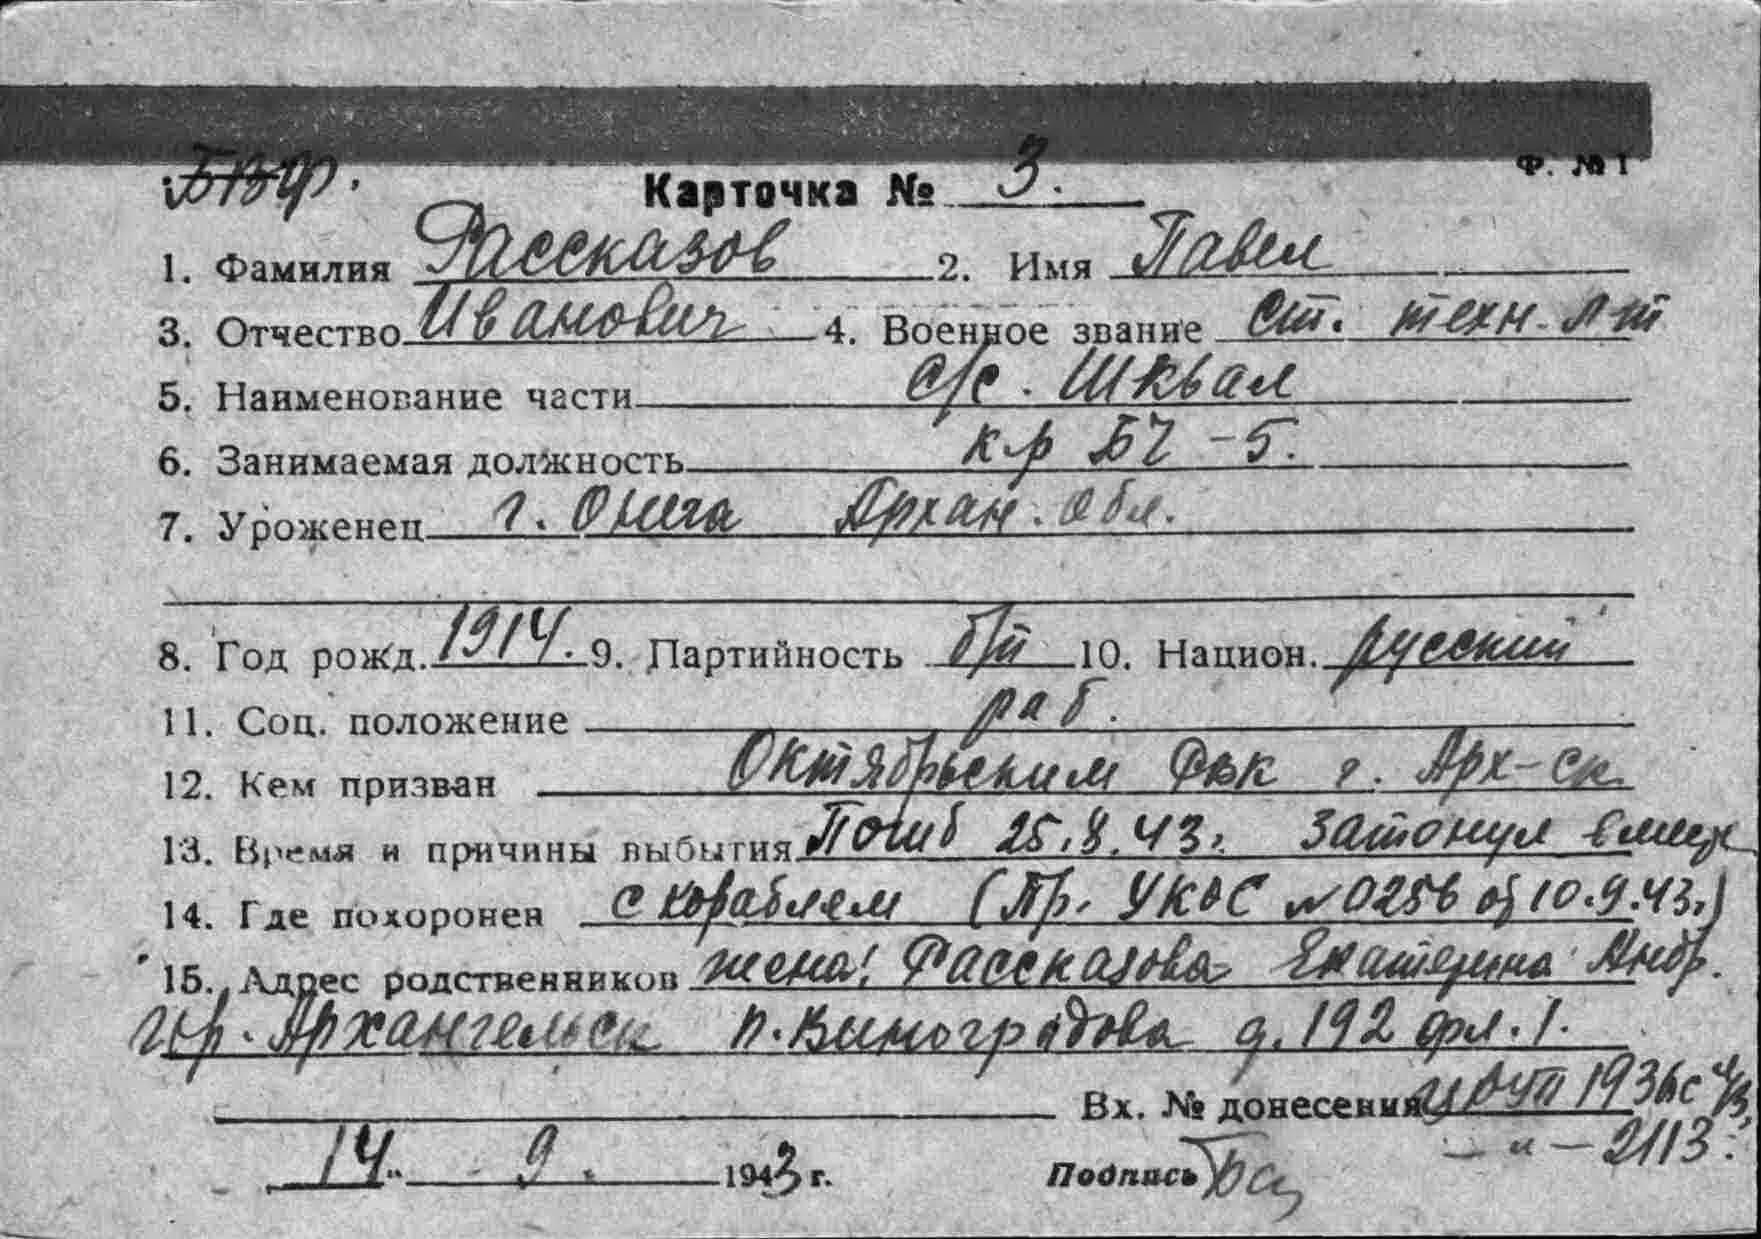 БВФ.
Ф. № 1
Карточка № 3.
1. Фамилия Рассказов 2. Имя Павел
3. Отчество Иванович 4. Военное звание Ст. техн. л-т
5. Наименование части с/с. Шквал
6. Занимаемая должность к-р БЧ-5.
7. Уроженец г. Онега Архан. обл.
8. Год рожд. 1914. 9. Партийность б/п 10. Национ. русский
11. Соц. положение раб.
12. Кем призван Октябрьским РВК г. Арх-ск.
13. Время и причины выбытия Погиб 25.8.43г. Затонул вместе
14. Где похоронен с кораблем (Пр. УКОС № 0256 от 10.9.43г.)
15. Адрес родственников жена: Рассказова Екатерина Андр.
гор. Архангельск п. Виноградова д. 192 фл. 1.
Вх. № донесения 1936с
— " — 2113.
14 9. 1943 г. Подпись